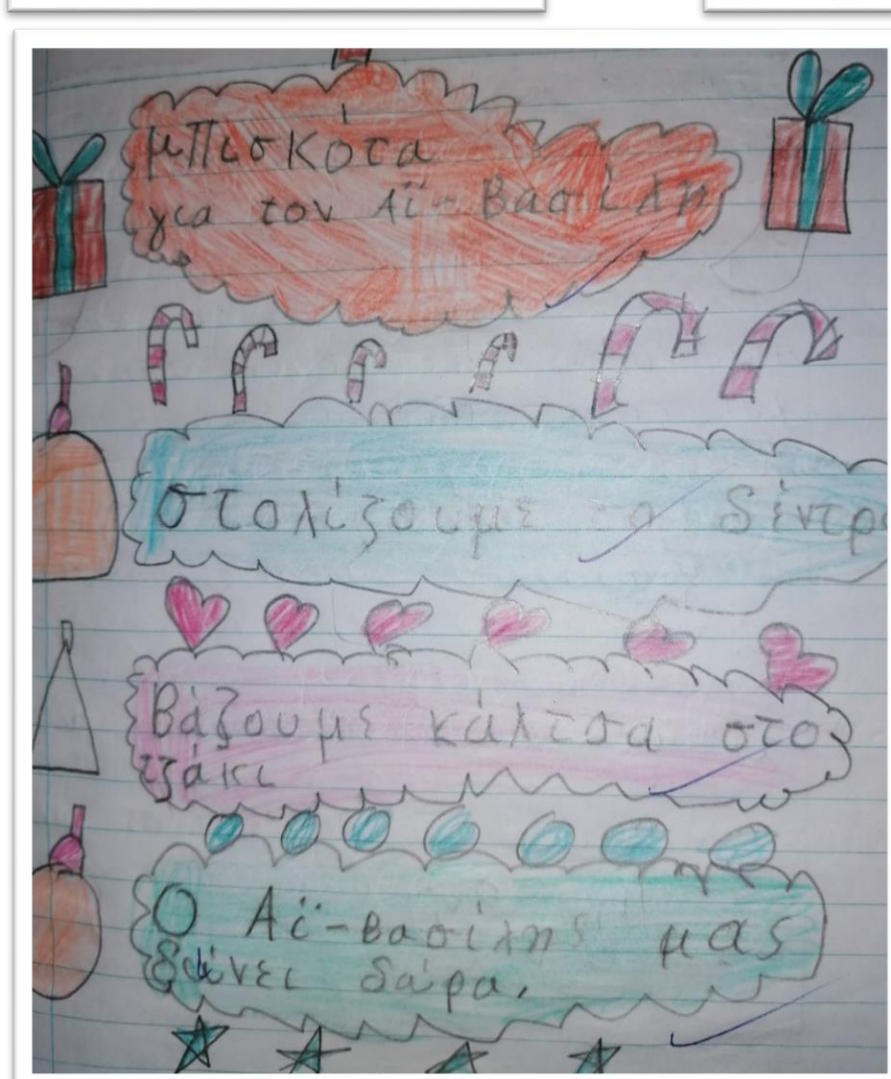 μπισκότα
για τον Αϊ-Βασίλη
στολίζουμε το δέντρο
βάζουμε κάλτσα στο
τζάκι
Ο Αϊ-Βασίλης μας
δίνει δώρα.